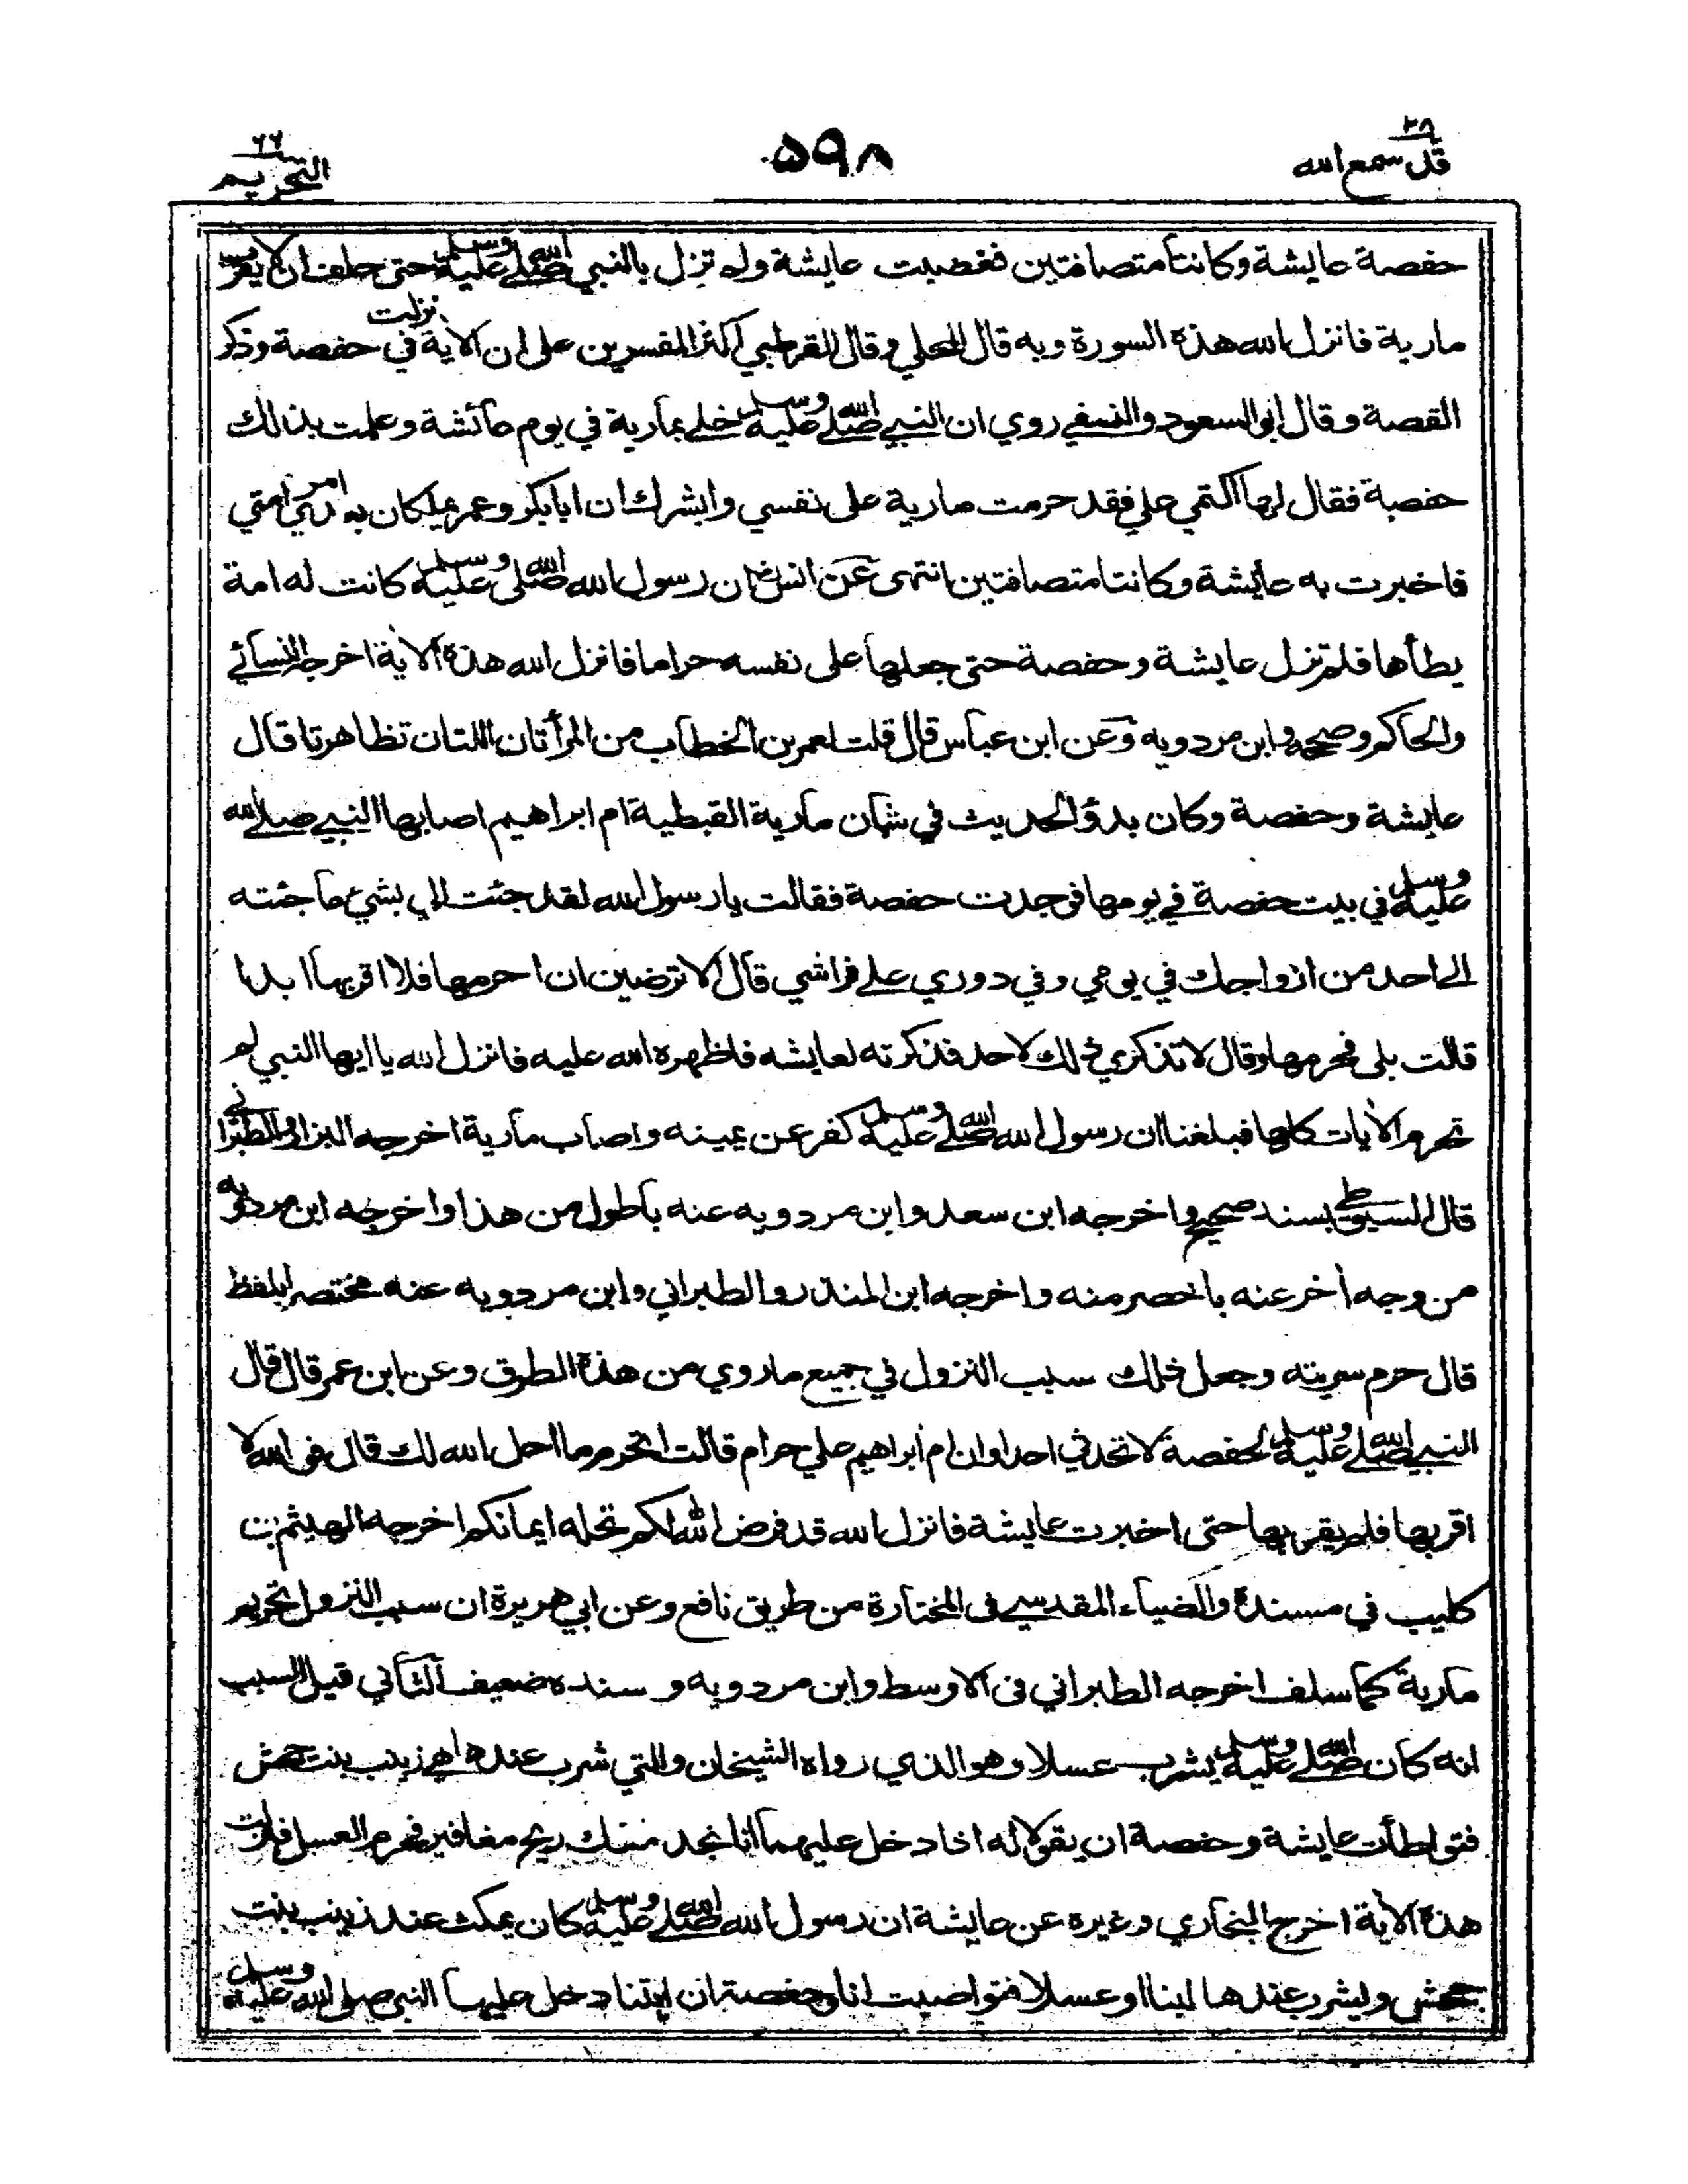 ٢٨
قد سمع الله
٥٩٨
٦٦
التحريم
حفصة عايشة وكانتا متصافتين فغضبت عايشة ولم تزل بالنبي صلى الله عليه وسلم حتى حلف ان لا يقرب
مارية فانزل الله هذه السورة وبه قال المحلي وقال القرطبي اكثر المفسرين على ان الاية نزلت في حفصة وذكر
القصة وقال ابو السعود والنسفي روي ان النبي صلى الله عليه وسلم خلى بمارية في يوم عائشة وعلمت بذلك
حفصة فقال لها اكتمي علي فقد حرمت مارية على نفسي وابشرك ان ابا بكر وعمر يملكان بعدي امر امتي
فاخبرت به عايشة وكانتا متصافتين انتهى عن انس ان رسول الله صلى الله عليه وسلم كانت له امة
يطأها فلم تزل عايشة وحفصة حتى جعلها على نفسه حراما فانزل الله هذه الاية اخرجه النسائي
والحاكم وصححه وابن مردويه وعن ابن عباس قال قلت لعمر بن الخطاب من المرأتان اللتان تظاهرتا قال
عايشة وحفصة وكان بدؤ الحديث في شان مارية القبطية ام ابراهيم اصابها النبي صلى الله
عليه وسلم في بيت حفصة في يومها فوجدت حفصة فقالت يا رسول الله لقد جئت الي بشيء ما جئته
الى احد من ازواجك في يومي وفي دوري على فراشي قال الا ترضين ان احرمها فلا اقربها ابدا
قالت بلى فحرمها وقال لا تذكري ذلك لاحد فذكرته لعايشه فاظهره الله عليه فانزل الله يا ايها النبي لم
تحرم الآيات كلها فبلغنا ان رسول الله صلى الله عليه وسلم كفر عن يمينه واصاب مارية اخرجه البزار والطبراني
قال السيوطي بسند صحيح واخرجه ابن سعد وابن مردويه عنه باطول من هذا واخرجه ابن مردويه
من وجه أخر عنه باخصر منه واخرجه ابن المنذر والطبراني وابن مردويه عنه مختصرا بلفظ
قال حرم سريته وجعل ذلك سبب النزول في جميع ما روي من هذه الطرق وعن ابن عمر قال قال
النبي صلى الله عليه وسلم لحفصة لا تحدثي احدا وان ام ابراهيم علي حرام قالت اتحرم ما احل الله لك قال فوالله لا
اقربها فلم يقربها حتى اخبرت عايشة فانزل الله قد فرض الله لكم تحلة ايمانكم اخرجه الهيثم بن
كليب في مسنده والضياء المقدسي في المختارة من طريق نافع وعن ابي هريرة ان سبب النزول تحريم
مارية كما سلف اخرجه الطبراني في الاوسط وابن مردويه وسنده ضعيف الثاني قيل السبب
انه كان صلى الله عليه وسلم يشرب عسلا وهو الذي رواه الشيخان والتي شرب عندها هي زينب بنت جحش
فتواطأت عايشة وحفصة ان يقولا له اذا دخل عليهما انا نجد منك ريح مغافير فحرم العسل فنزلت
هذه الآية اخرج البخاري وغيره عن عايشة ان رسول الله صلى الله عليه وسلم كان يمكث عند زينب بنت
جحش ويشرب عندها لبنا او عسلا فتواصيت انا وحفصة ان ايتنا دخل عليها النبي صلى الله عليه وسلم